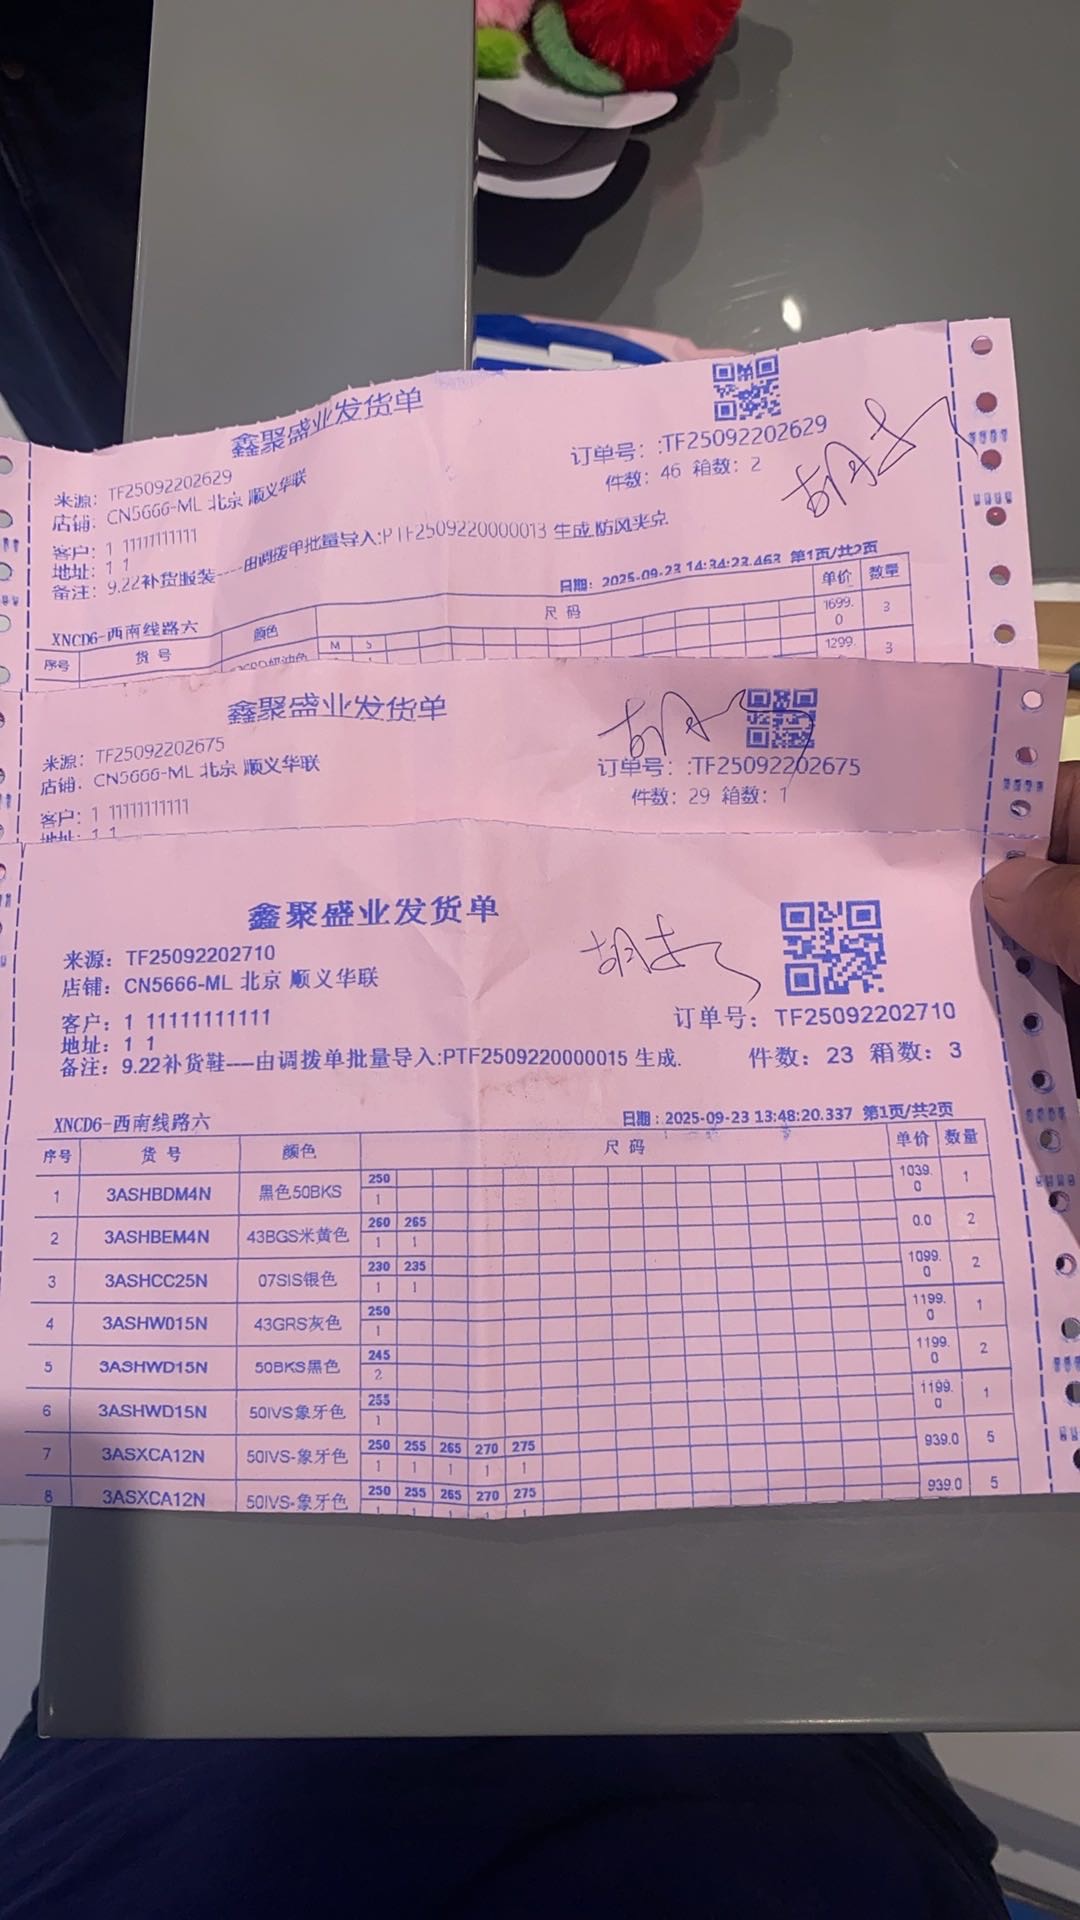 鑫聚盛业发货单
来源：TF25092202629
店铺：CN5666-ML 北京 顺义华联
订单号：:TF25092202629
件数：46 箱数：2
客户：1 11111111111
地址：1 1
备注：9.22补货服装----由调拨单批量导入:PTF2509220000013 生成.防风夹克.
日期：2025-09-23 14:34:23.463 第1页/共2页
XNCD6-西南线路六
序号 货号 颜色 尺码 单价 数量
M S
1699.0 3
1299. 3
鑫聚盛业发货单
来源：TF25092202675
店铺：CN5666-ML 北京 顺义华联
订单号：:TF25092202675
件数：29 箱数：1
客户：1 11111111111
地址：1 1
鑫聚盛业发货单
来源：TF25092202710
店铺：CN5666-ML 北京 顺义华联
订单号：TF25092202710
客户：1 11111111111
地址：1 1
备注：9.22补货鞋----由调拨单批量导入:PTF2509220000015 生成.
件数：23 箱数：3
XNCD6-西南线路六
日期：2025-09-23 13:48:20.337 第1页/共2页
序号 货号 颜色 尺码 单价 数量
250
1 3ASHBDM4N 黑色50BKS 1 1039.0 1
260 265
2 3ASHBEM4N 43BGS米黄色 1 1 0.0 2
230 235
3 3ASHCC25N 07SIS银色 1 1 1099.0 2
250
4 3ASHW015N 43GRS灰色 1 1199.0 1
245
5 3ASHWD15N 50BKS黑色 2 1199.0 2
255
6 3ASHWD15N 50IVS象牙色 1 1199.0 1
250 255 265 270 275
7 3ASXCA12N 50IVS-象牙色 1 1 1 1 1 939.0 5
250 255 265 270 275
8 3ASXCA12N 50IVS-象牙色 1 1 1 1 1 939.0 5